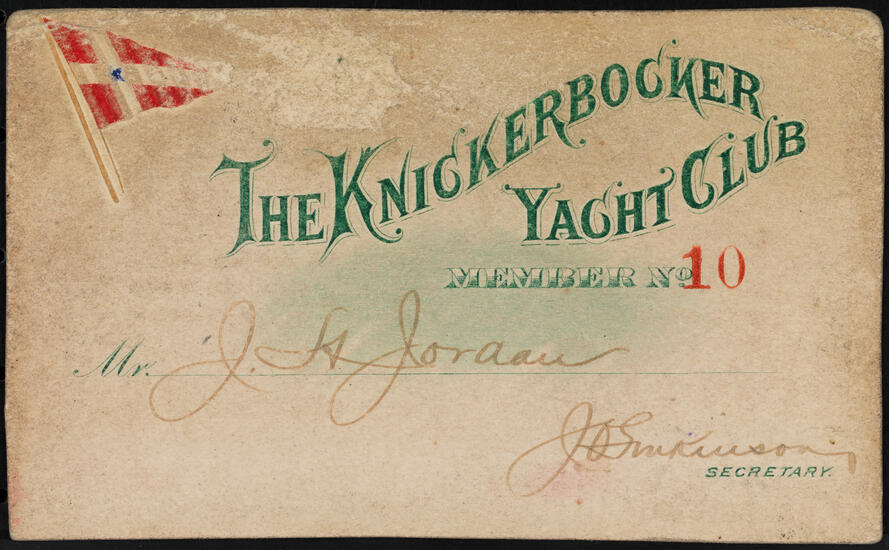 THE KNICKERBOCKER
YACHT CLUB
MEMBER No 10
Mr. J. H Jordan
SECRETARY.